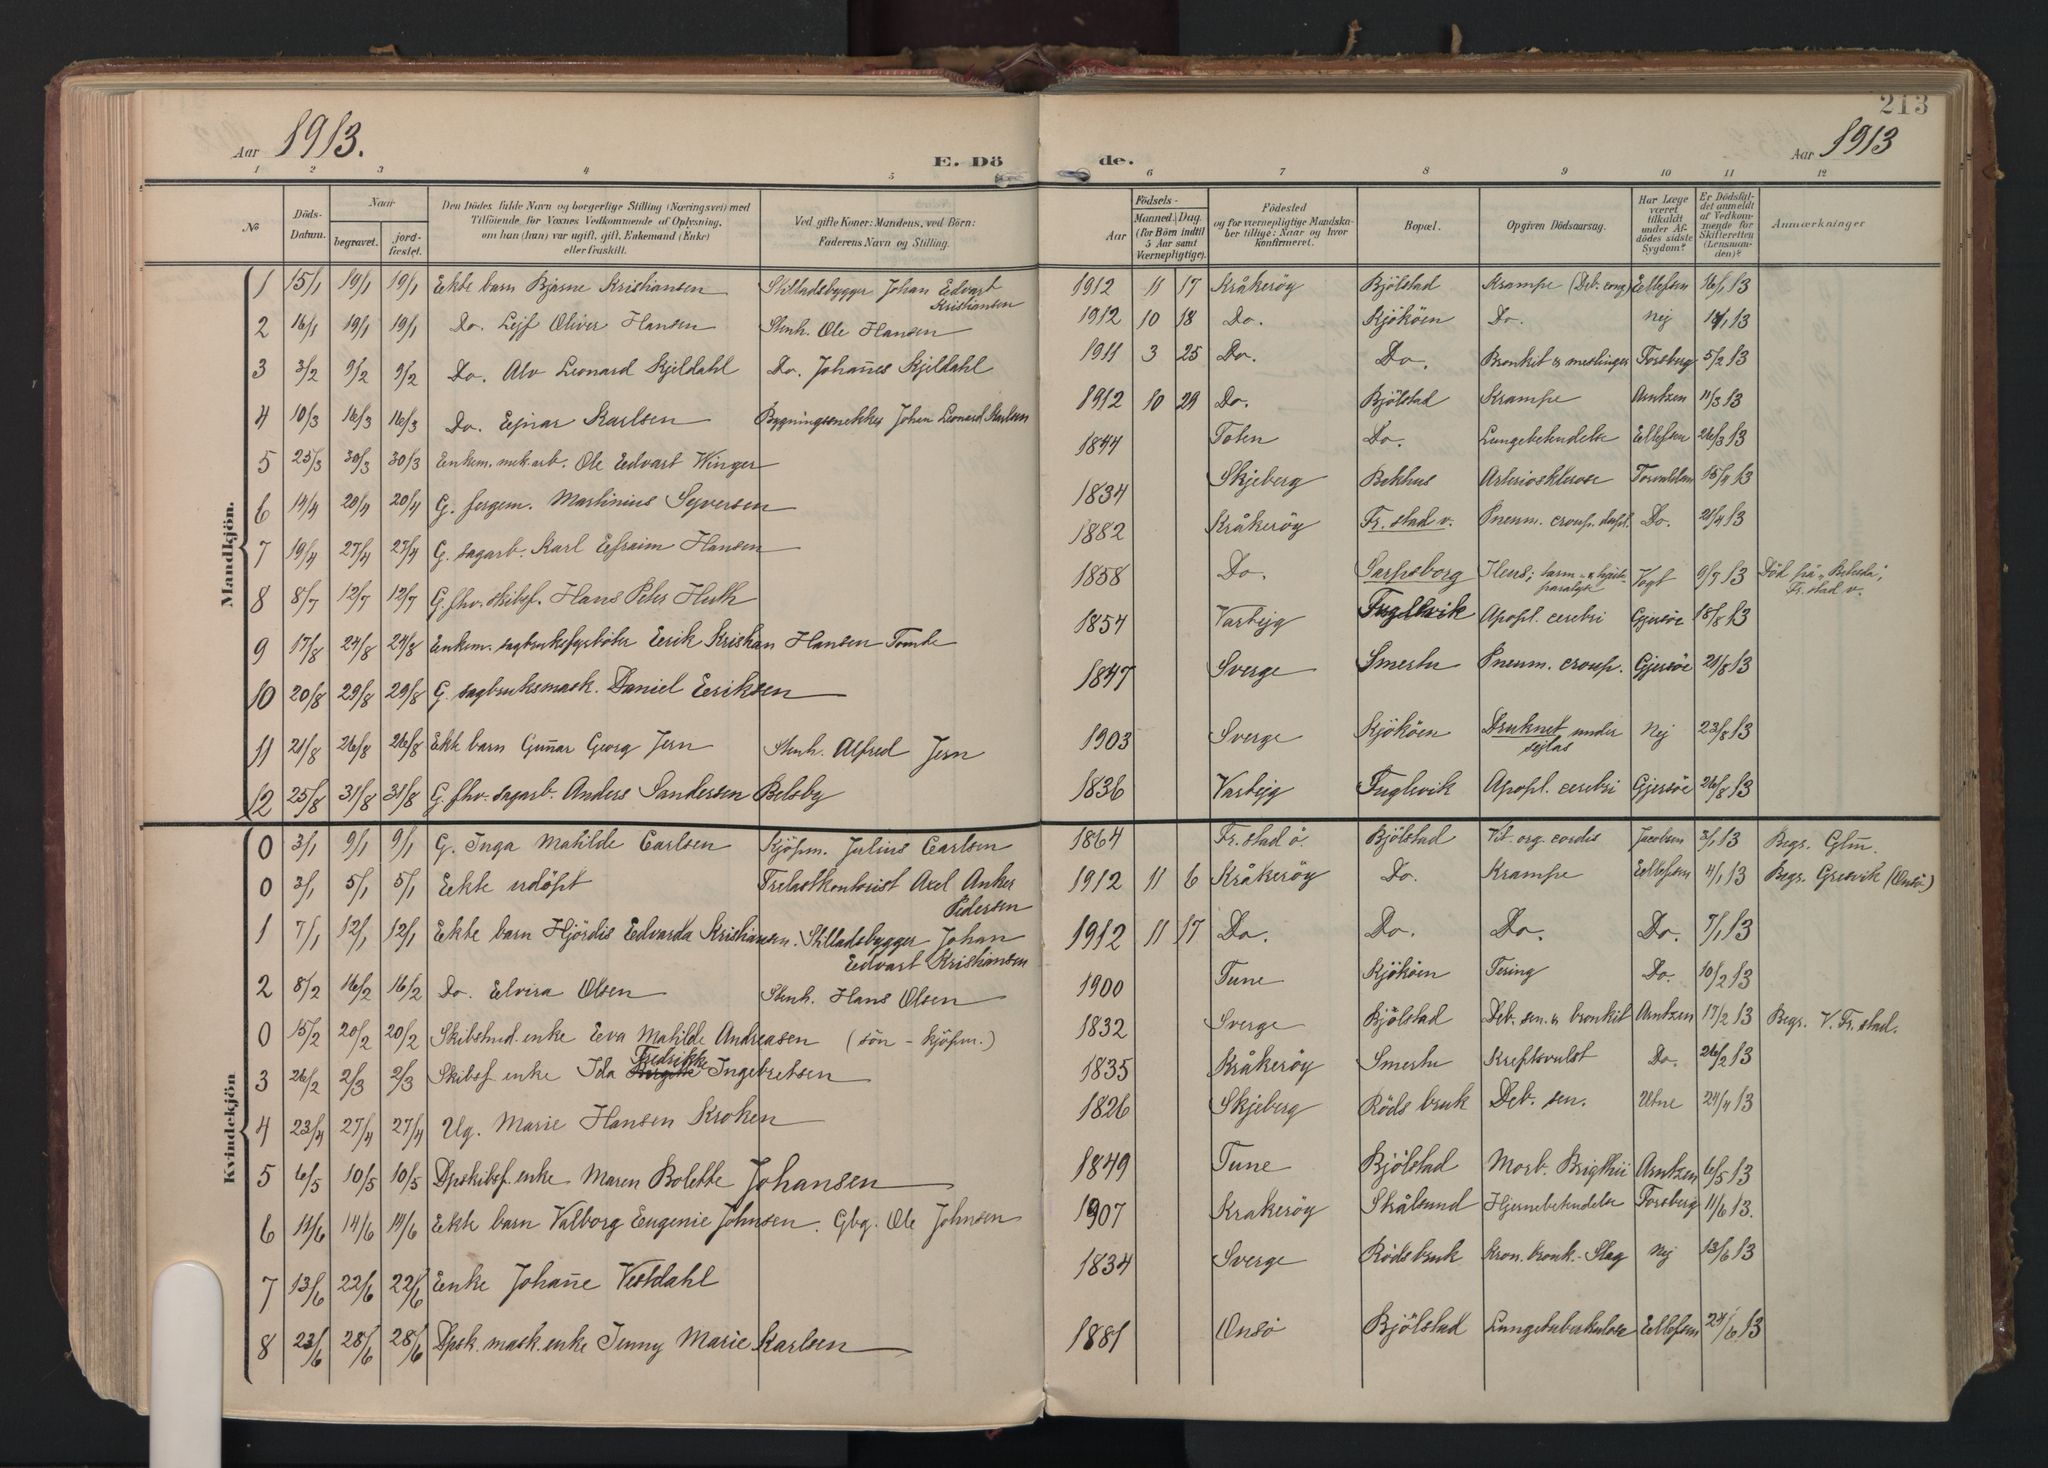 213
Aar 1913.
E. Dö
de.
Aar 1913
1 2 3 4 5 6 7 8 9 10 11 12
No
Döds-Datum.
Naar
begravet.
jord-fæstet.
Den Dödes fulde Navn og borgerlige Stilling (Næringsvei) med
Tilföiende for Voxnes Vedkommende af Oplysning,
om han (hun) var ugift, gift, Enkemand (Enke)
eller fraskilt.
Ved gifte Koner: Mandens, ved Börn:
Faderens Navn og Stilling.
Födsels-
Aar
Maaned. Dag.
(for Börn indtil
5 Aar samt
Værnepligtige).
Födested
og for værnepligtige Mandska-
ber tillige: Naar og hvor
konfirmeret.
Bopæl.
Opgiven Dödsaarsag.
Har Læge
været
tilkaldt
under Af-
dödes sidste
Sygdom?
Er Dödsfal-
det anmeldt
af Vedkom-
mende for
Skifteretten
(Lensman-
den)?
Anmærkninger
Mandkjön.
1 15/1 19/1 19/1 Ekte barn Bjarne Kristiansen Stilladsbygger Johan Edvart Kristiansen 1912 11 17 Kråkeröy Bjölstad Krampe (Deb. cong) Ellefsen 16/1 13
2 16/1 19/1 19/1 Do. Lejf Oliver Hansen Stenh. Ole Hansen 1912 10 18 Do. Kjököen Do. Nej 13
3 3/2 9/2 9/2 Do. Alv Leonard Kjildahl Do. Johañes Kjildahl 1911 3 25 Do. Do. Bronkit & meslinger Forsberg 5/2 13
4 10/3 16/3 16/3 Do. Ejnar Karlsen Bygningssnekker Johan Leonard Karlsen 1912 10 29 Do. Bjölstad Krampe Arntzen 11/3 13
5 25/3 30/3 30/3 Enkem. mek. arb. Ole Edvart Winger 1844 Toten Do. Lungebetendelse Ellefsen 26/3 13
6 14/4 20/4 20/4 G. fergem. Martinius Syversen 1834 Skjeberg Bekhus Arteriosklerose 15/4 13
7 19/4 27/4 27/4 G. sagarb. Karl Efraim Hansen 1882 Kråkeröy Fr.stad v. Pneum. croup. dupl. Do. 21/4 13
8 8/7 12/7 12/7 G. fhv. skibsf. Hans Peter Huth 1858 Do. Sarpsborg Ileus; tarm- Vogt 9/7 13 Död på "Betesda", Fr.stad v.
9 17/8 24/8 24/8 Enkem. sagbruksfyrböter Eerik Kristian Hansen Tomte 1854 Vartejg Fuglevik Apopl. cerebri Gjersöe 18/8 13
10 20/8 29/8 29/8 G. sagbruksmask. Daniel Eeriksen 1847 Sverge Smertu Pneum. croup. Gjersöe 21/8 13
11 21/8 26/8 26/8 Ekte barn Guñar Georg Jern Stenh. Alfred Jern 1903 Sverge Kjököen Druknet under sejlas Nej 23/8 13
12 25/8 31/8 31/8 G. fhv. sagarb. Anders Sandersen Belsby 1836 Vartejg Fuglevik Apopl. cerebri Gjersöe 26/8 13
Kvindekjön
0 3/1 9/1 9/1 G. Inga Matilde Carlsen Kjöpm. Julius Carlsen 1864 Fr.stad ö. Bjölstad Vit. org. cordis Jacobsen 3/1 13 Begr. Glm.
0 3/1 5/1 5/1 Ekte udöpt Trelastkontorist Axel Anker Pedersen 1912 11 6 Kråkeröy Do. Krampe Ellefsen 4/1 13 Begr. Gresvik (Onsö.)
1 7/1 12/1 12/1 Ekte barn Hjördis Edvarda Kristiansen. Stilladsbygger Johan Edvart Kristiansen 1912 11 17 Do. Do. Do. Do. 7/1 13
2 8/2 16/2 16/2 Do. Elvira Olsen Stenh. Hans Olsen 1900 Tune Kjököen Tering Do. 10/2 13
0 15/2 20/2 20/2 Skibstmd. enke Eeva Matilde Andreasen (sön - kjöpm.) 1832 Sverge Bjölstad Deb. sen. & bronkit Arntzen 17/2 13 Begr. V. Fr.stad.
3 26/2 2/3 2/3 Skibsf. enke Ida Fredrikke Ingebretsen 1835 Kråkeröy Smertu Kreftsvulst Do. 26/2 13
4 23/4 27/4 27/4 Ug. Marie Hansen Kroken 1826 Skjeberg Röds bruk Deb. sen. Utne 24/4 13
5 6/5 10/5 10/5 Dpskibsf. enke Maren Bolette Johansen 1849 Tune Bjölstad Morb. Brigthii Arntzen 6/5 13
6 11/6 14/6 14/6 Ekte barn Valborg Eugenie Johnsen. Gbg. Ole Johnsen 1907 Kråkeröy Skålsund Hjernebetendelse Forsberg 11/6 13.
7 13/6 22/6 22/6 Enke Johañe Vestdahl 1834 Sverge Rödsbruk Kron. bronk. - Slag Nej 13/6 13
8 23/6 28/6 28/6 Dpsk. mask. enke Jenny Marie Karlsen 1881 Onsö Bjölstad Lungetuberkulose Ellefsen 24/6 13